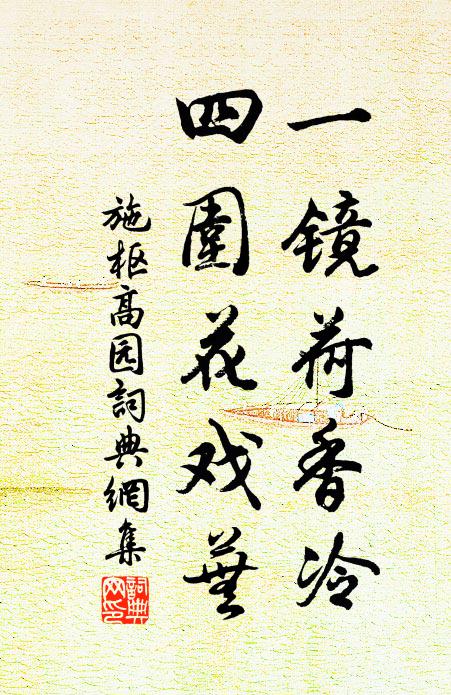 一镜荷香冷
四围花戏蕪
施枢高园詞典網集
詞典网印